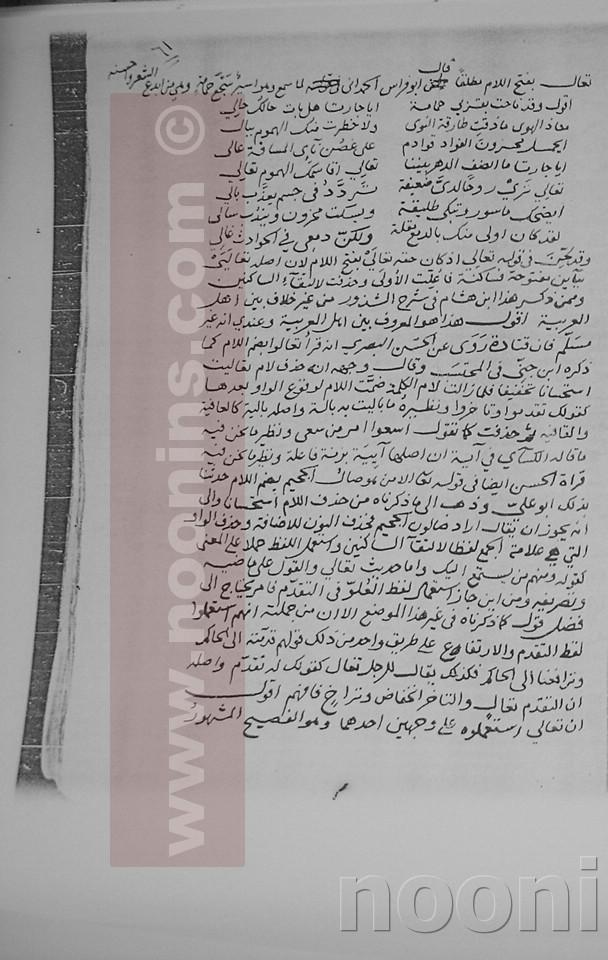 ٦١
تعال بفتح اللام مطلقا قال ابو فراس الحمداني لما سمع وهو اسير تسجع حمامة وهو من ابدع الشعر واحسنه
اقول وقد ناحت بقربي حمامة ايا جارتا هل بات حالك حالي
معاذ الهوى ما ذقت طارقة النوى ولا خطرت منك الهموم ببال
ايحمل محزون الفؤاد قوادم على غصن نائي المسافة عالي
ايا جارتا ما انصف الدهر بيننا تعالي اقاسمك الهموم تعالي
تعالي تري روحا لدي ضعيفة تردد في جسم يعذب بالي
ايضحك ماسور وتبكي طليقة ويسكت محزون ويندب سالي
لقد كان اولى منك بالدمع مقلة ولكن دمعي في الحوادث غالي
وقد لحن في قوله تعالي اذ كان حقه تعالي بفتح اللام لان اصله تعاليي
بيآين مفتوحة فساكنة فاعلت الأولى وحذفت لالتقآء الساكنين
وممن ذكر هذا ابن هشام في شرح الشذور من غير خلاف بين اهل
العربية اقول هذا هو المعروف بين اهل العربية وعندي انه غير
مسلم فان قتادة روى عن الحسن البصري انه قرأ تعالوا بضم اللام كما
ذكره ابن جني في المحتسب وقال وجهه انه حذف لام تعاليت
استحسانا تخفيفا فلما زالت لام الكلمة ضمت اللام لوقوع الواو بعدها
كقولك تقدموا وتاخروا ونظيره ما باليت به بالة واصله بالية كالعافية
والعاقبة ثم حذفت كما تقول اسعوا امر من سعى ونظير ما نحن فيه
ما قاله الكسآي في آية ان اصلها آيية بزنة فاعلة ونظير ما نحن فيه
قراة الحسن ايضا في قوله تعالى الا من هو صال الجحيم بضم اللام حدثنا
بذلك ابو علي وذهب الى ما ذكرناه من حذف اللام استحسانا والى
انه يجوز ان يقال اراد صالون الجحيم فحذف النون للاضافة وحذف الواو
التي هي علامة الجمع لفظا لالتقآ الساكنين واستعمل اللفظ حملا على المعنى
كقوله ومنهم من يستمع اليك واما حديث تعالي والقول على ماضيه
وتصريفه ومن اين جاز استعمال لفظ العلو في التقدم فامر يحتاج الى
فضل قول كما ذكرناه في غير هذا الموضع الا ان من جملته انهم استعملوا
لفظ التقدم والارتفاع على طريق واحد من ذلك قولهم قدمته الى الحاكم
وترافعنا الى الحاكم فكذلك يقال للرجل تعال كقولك له تقدم واصله
ان التقدم تعال والتاخر انخفاض وتراخ فافهم اقول
ان تعالي استعملوه على وجهين احدهما وهو الفصيح المشهور
www.noonins.com ©
nooni